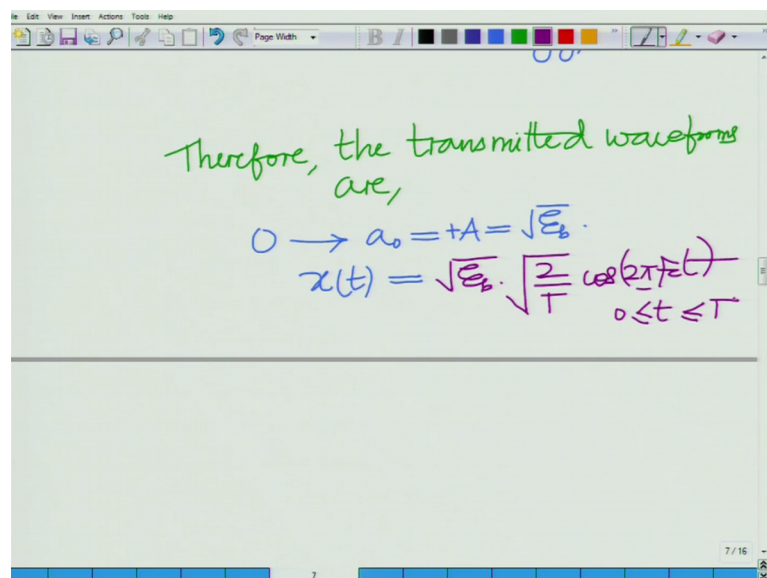 File Edit View Insert Actions Tools Help
Page Width
B I
Therefore, the transmitted waveforms
are,
0 → a₀ = +A = √ℰ_b.
x(t) = √ℰ_b. √(2/T) cos(2πF_c t)
0 ≤ t ≤ T
7/16
7